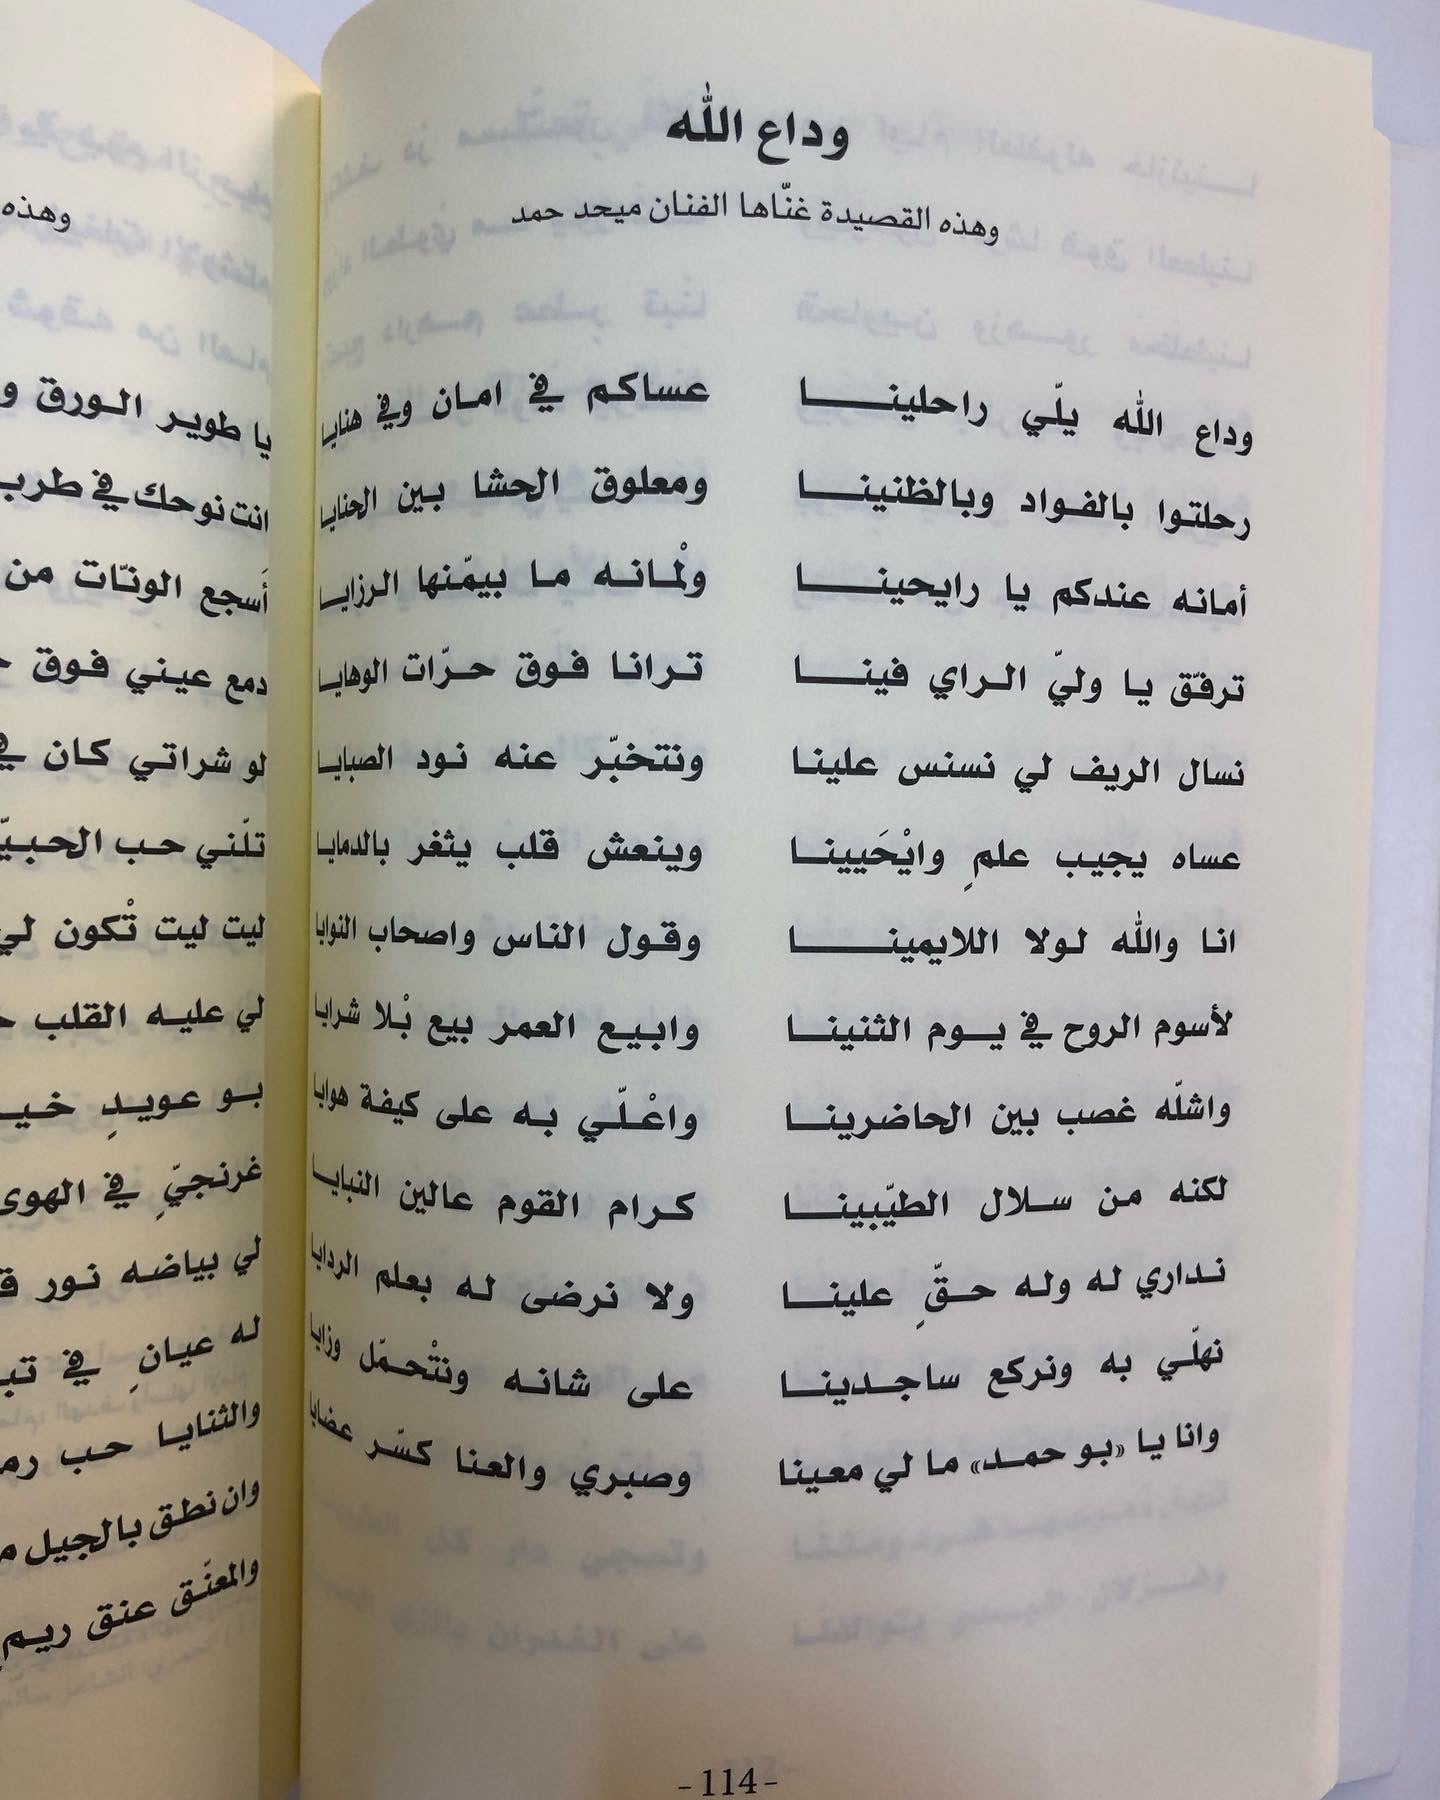 وداع الله
وهذه القصيدة غنّاها الفنان ميحد حمد
وداع الله يلّي راحلينا عساكم في امان وفي هنايا
رحلتوا بالفواد وبالظنينا ومعلوق الحشا بين الحنايا
أمانه عندكم يا رايحينا ولْمانه ما بيمّنها الرزايا
ترفّق يا وليّ الراي فينا ترانا فوق حرّات الوهايا
نسال الريف لي نسنس علينا ونتخبّر عنه نود الصبايا
عساه يجيب علمٍ وايْحَيينا وينعش قلب يثغر بالدمايا
انا والله لولا اللايمينا وقول الناس واصحاب النوايا
لأسوم الروح في يوم الثنينا وابيع العمر بيع بْلا شرايا
واشلّه غصب بين الحاضرينا واعْلّي به على كيفة هوايا
لكنه من سلال الطيّبينا كرام القوم عالين النبايا
نداري له وله حقٍّ علينا ولا نرضى له بعلم الردايا
نهلّي به ونركع ساجدينا على شانه ونتْحمّل وزايا
وانا يا «بو حمد» ما لي معينا وصبري والعنا كسّر عضايا
-114-
وهذه
يا طوير الورق
انت نوحك في طرب
أَسجع الونّات من
دمع عيني فوق
لو شراتي كان في
تلّني حب
ليت ليت تْكون لي
لي عليه القلب
بو عويدٍ
غرنجيٍّ في الهوى
لي بياضه نور
له عيانٍ في
والثنايا حب
وان نطق بالجيل
والمعنّق عنق ريم